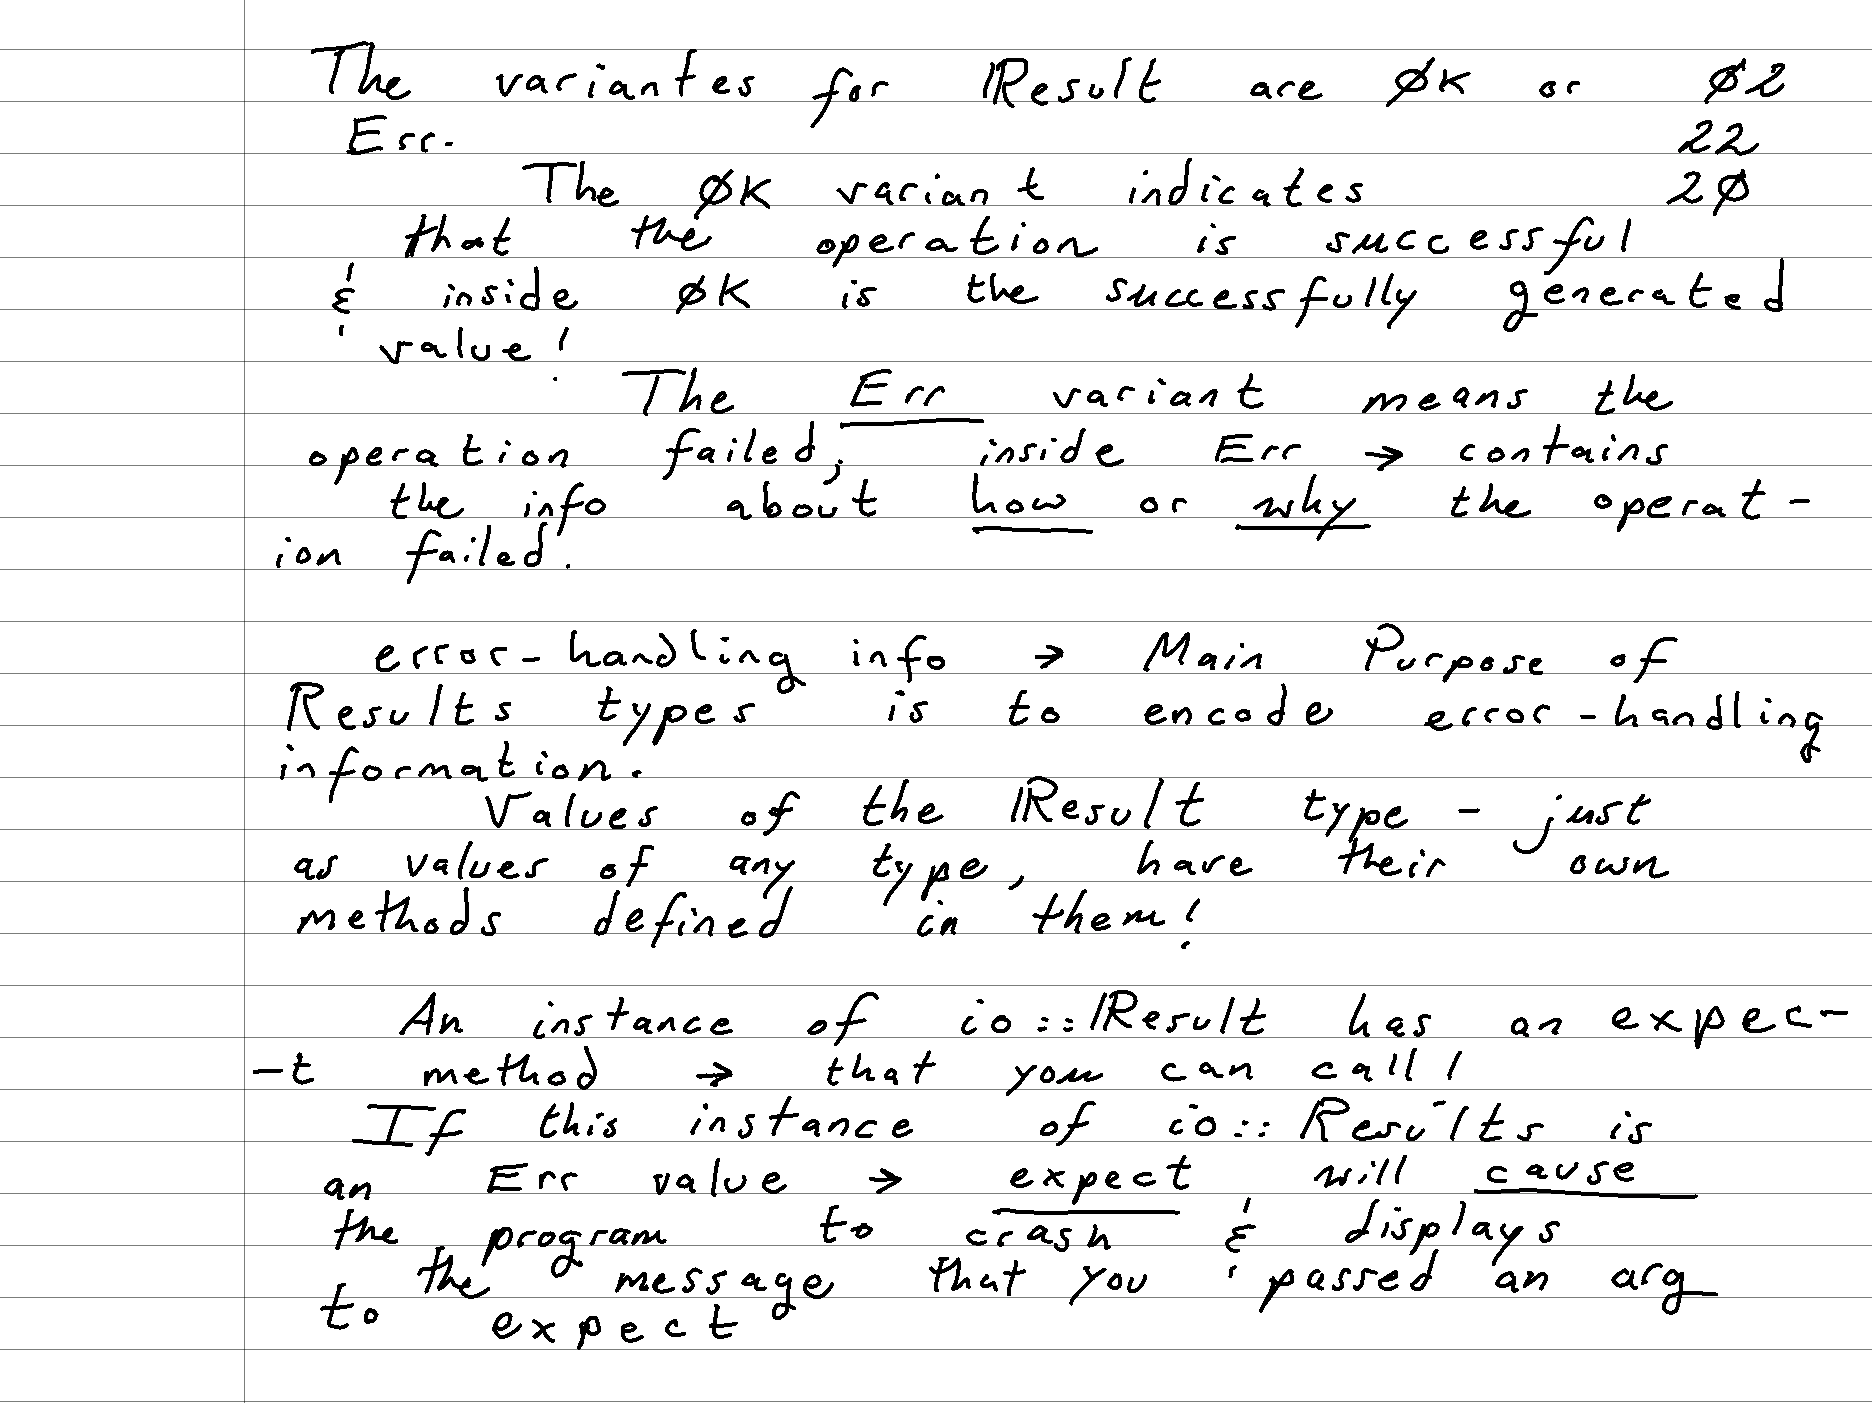 The variantes for Result are ØK or Ø2
Err. 22
The ØK variant indicates 2Ø
that the operation is successful
& inside ØK is the successfully generated
value!
The Err variant means the
operation failed; inside Err → contains
the info about how or why the operat-
ion failed.
error-handling info → Main Purpose of
Results types is to encode error-handling
information.
Values of the Result type - just
as values of any type, have their own
methods defined in them!
An instance of io::Result has an expec-
-t method → that you can call!
If this instance of io::Results is
an Err value → expect will cause
the program to crash & displays
the message that you passed an arg
to expect